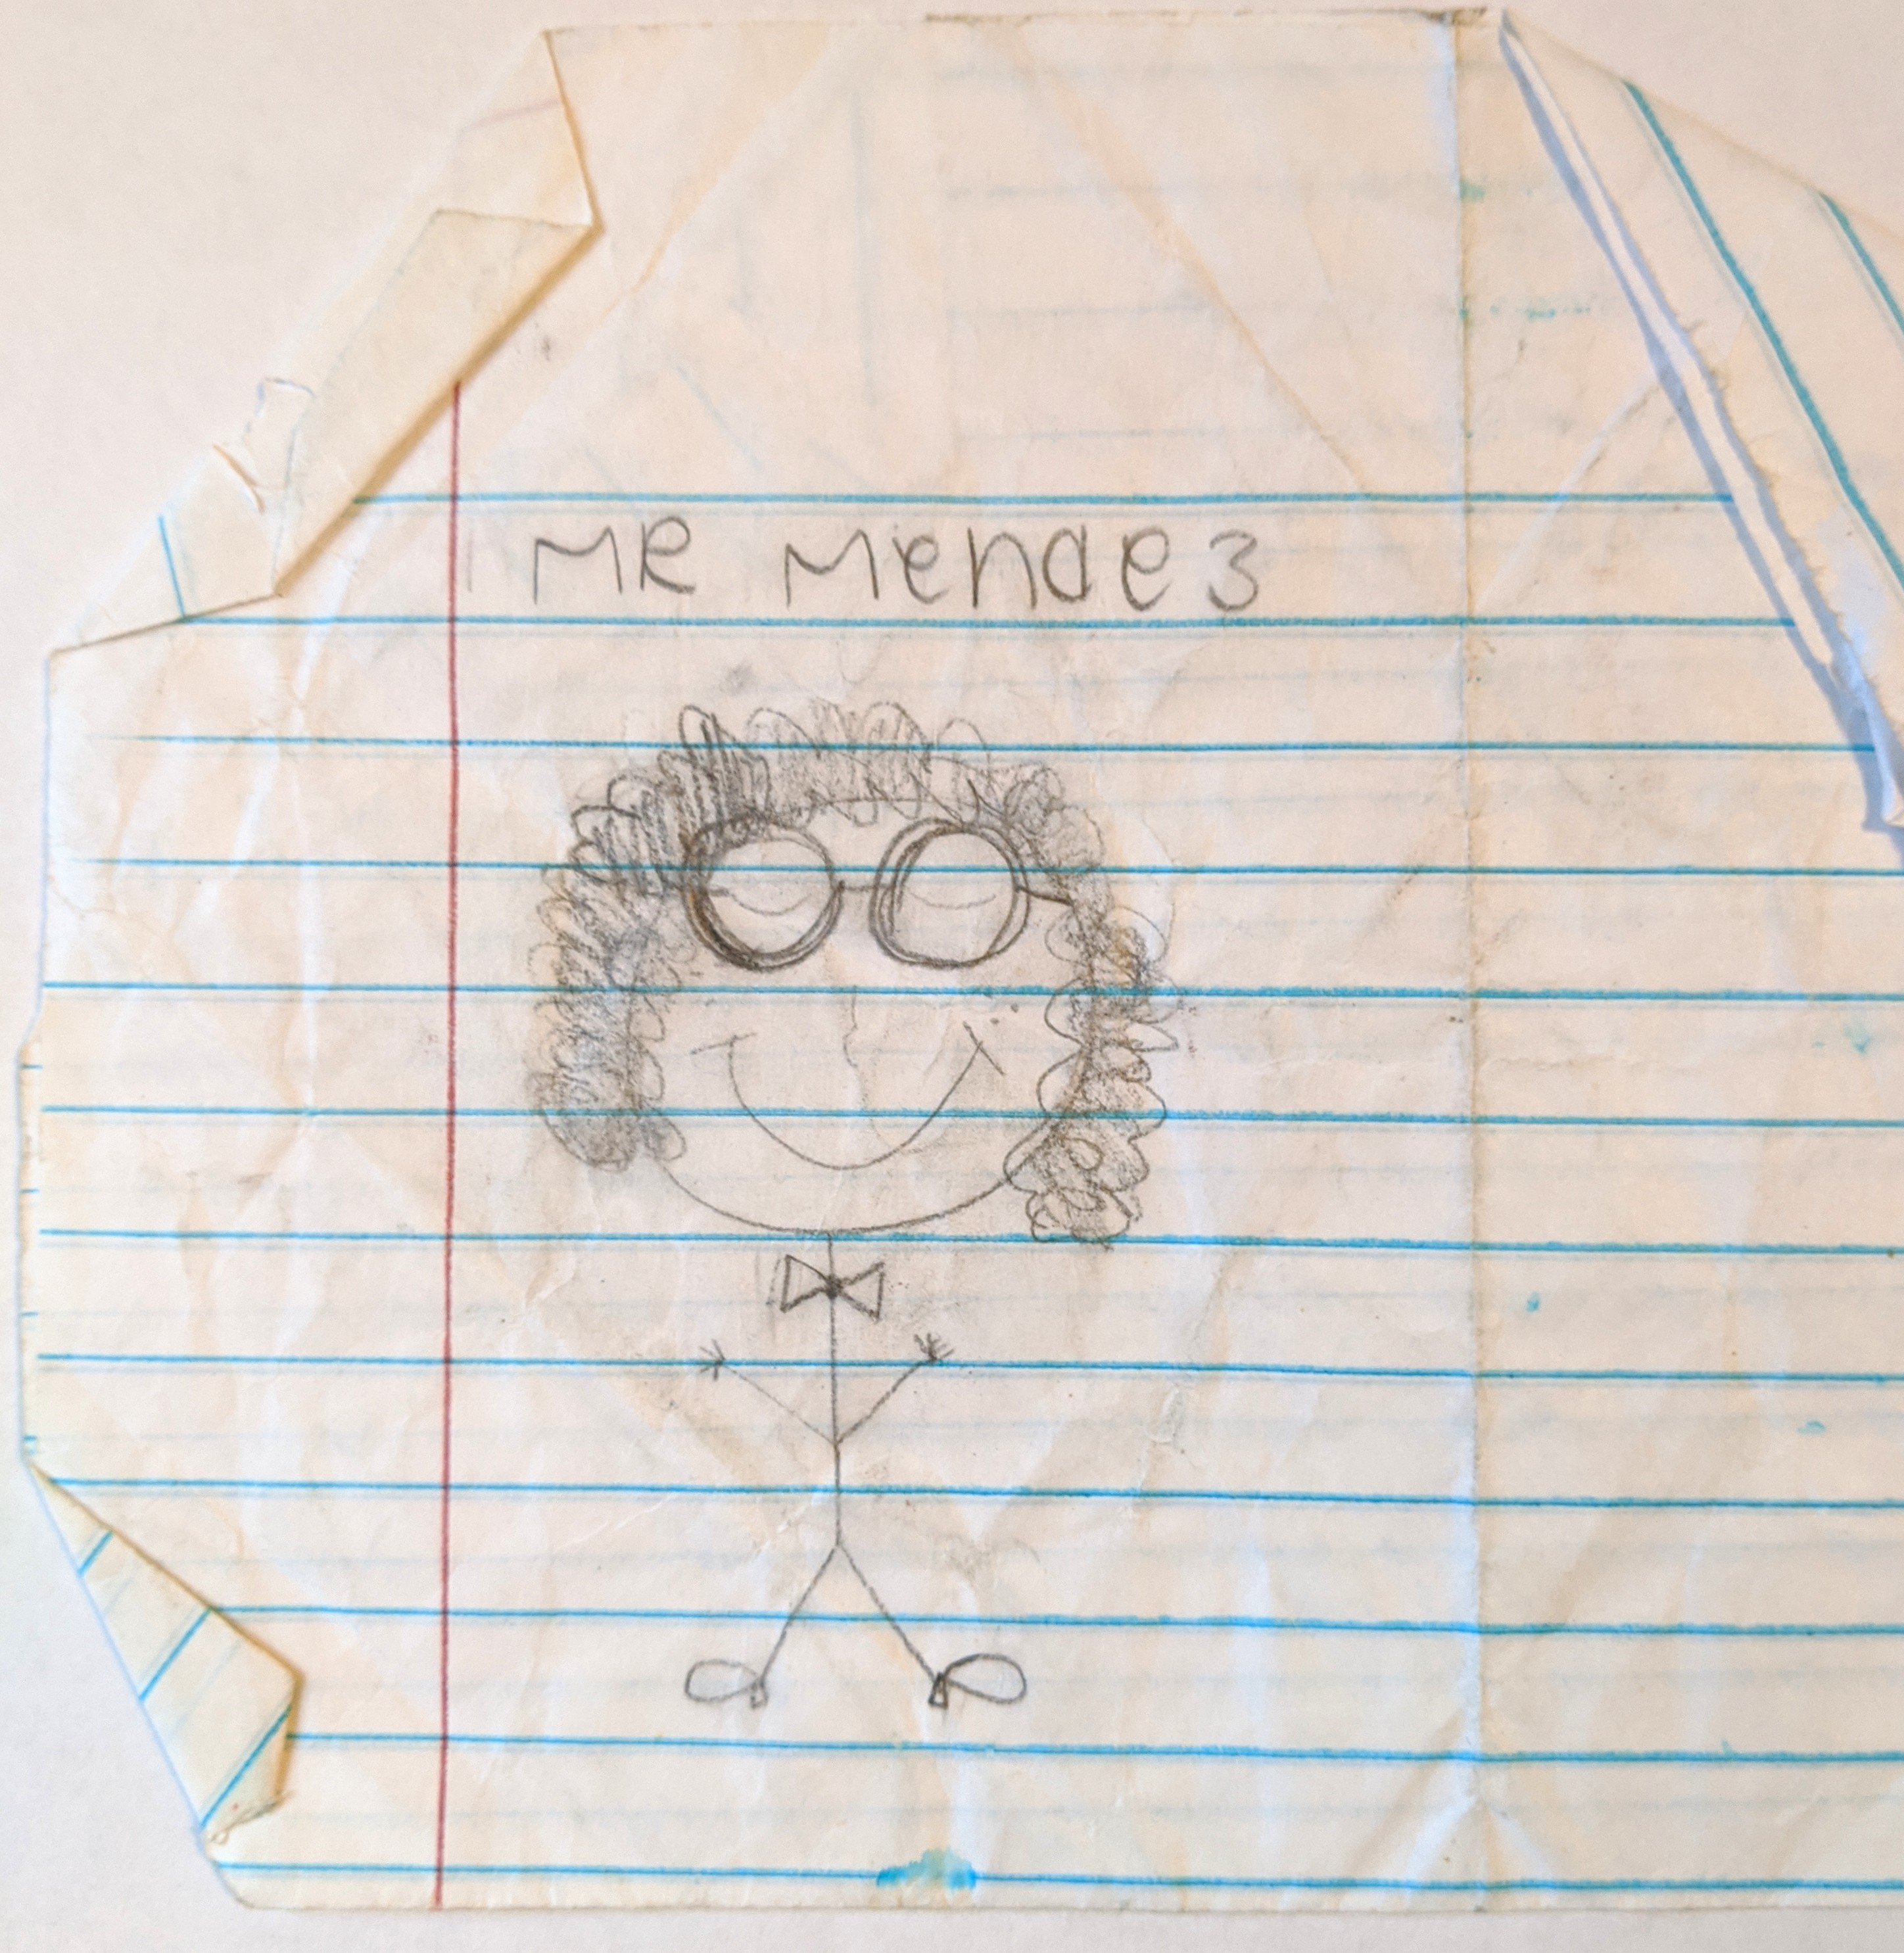 MR Mendez